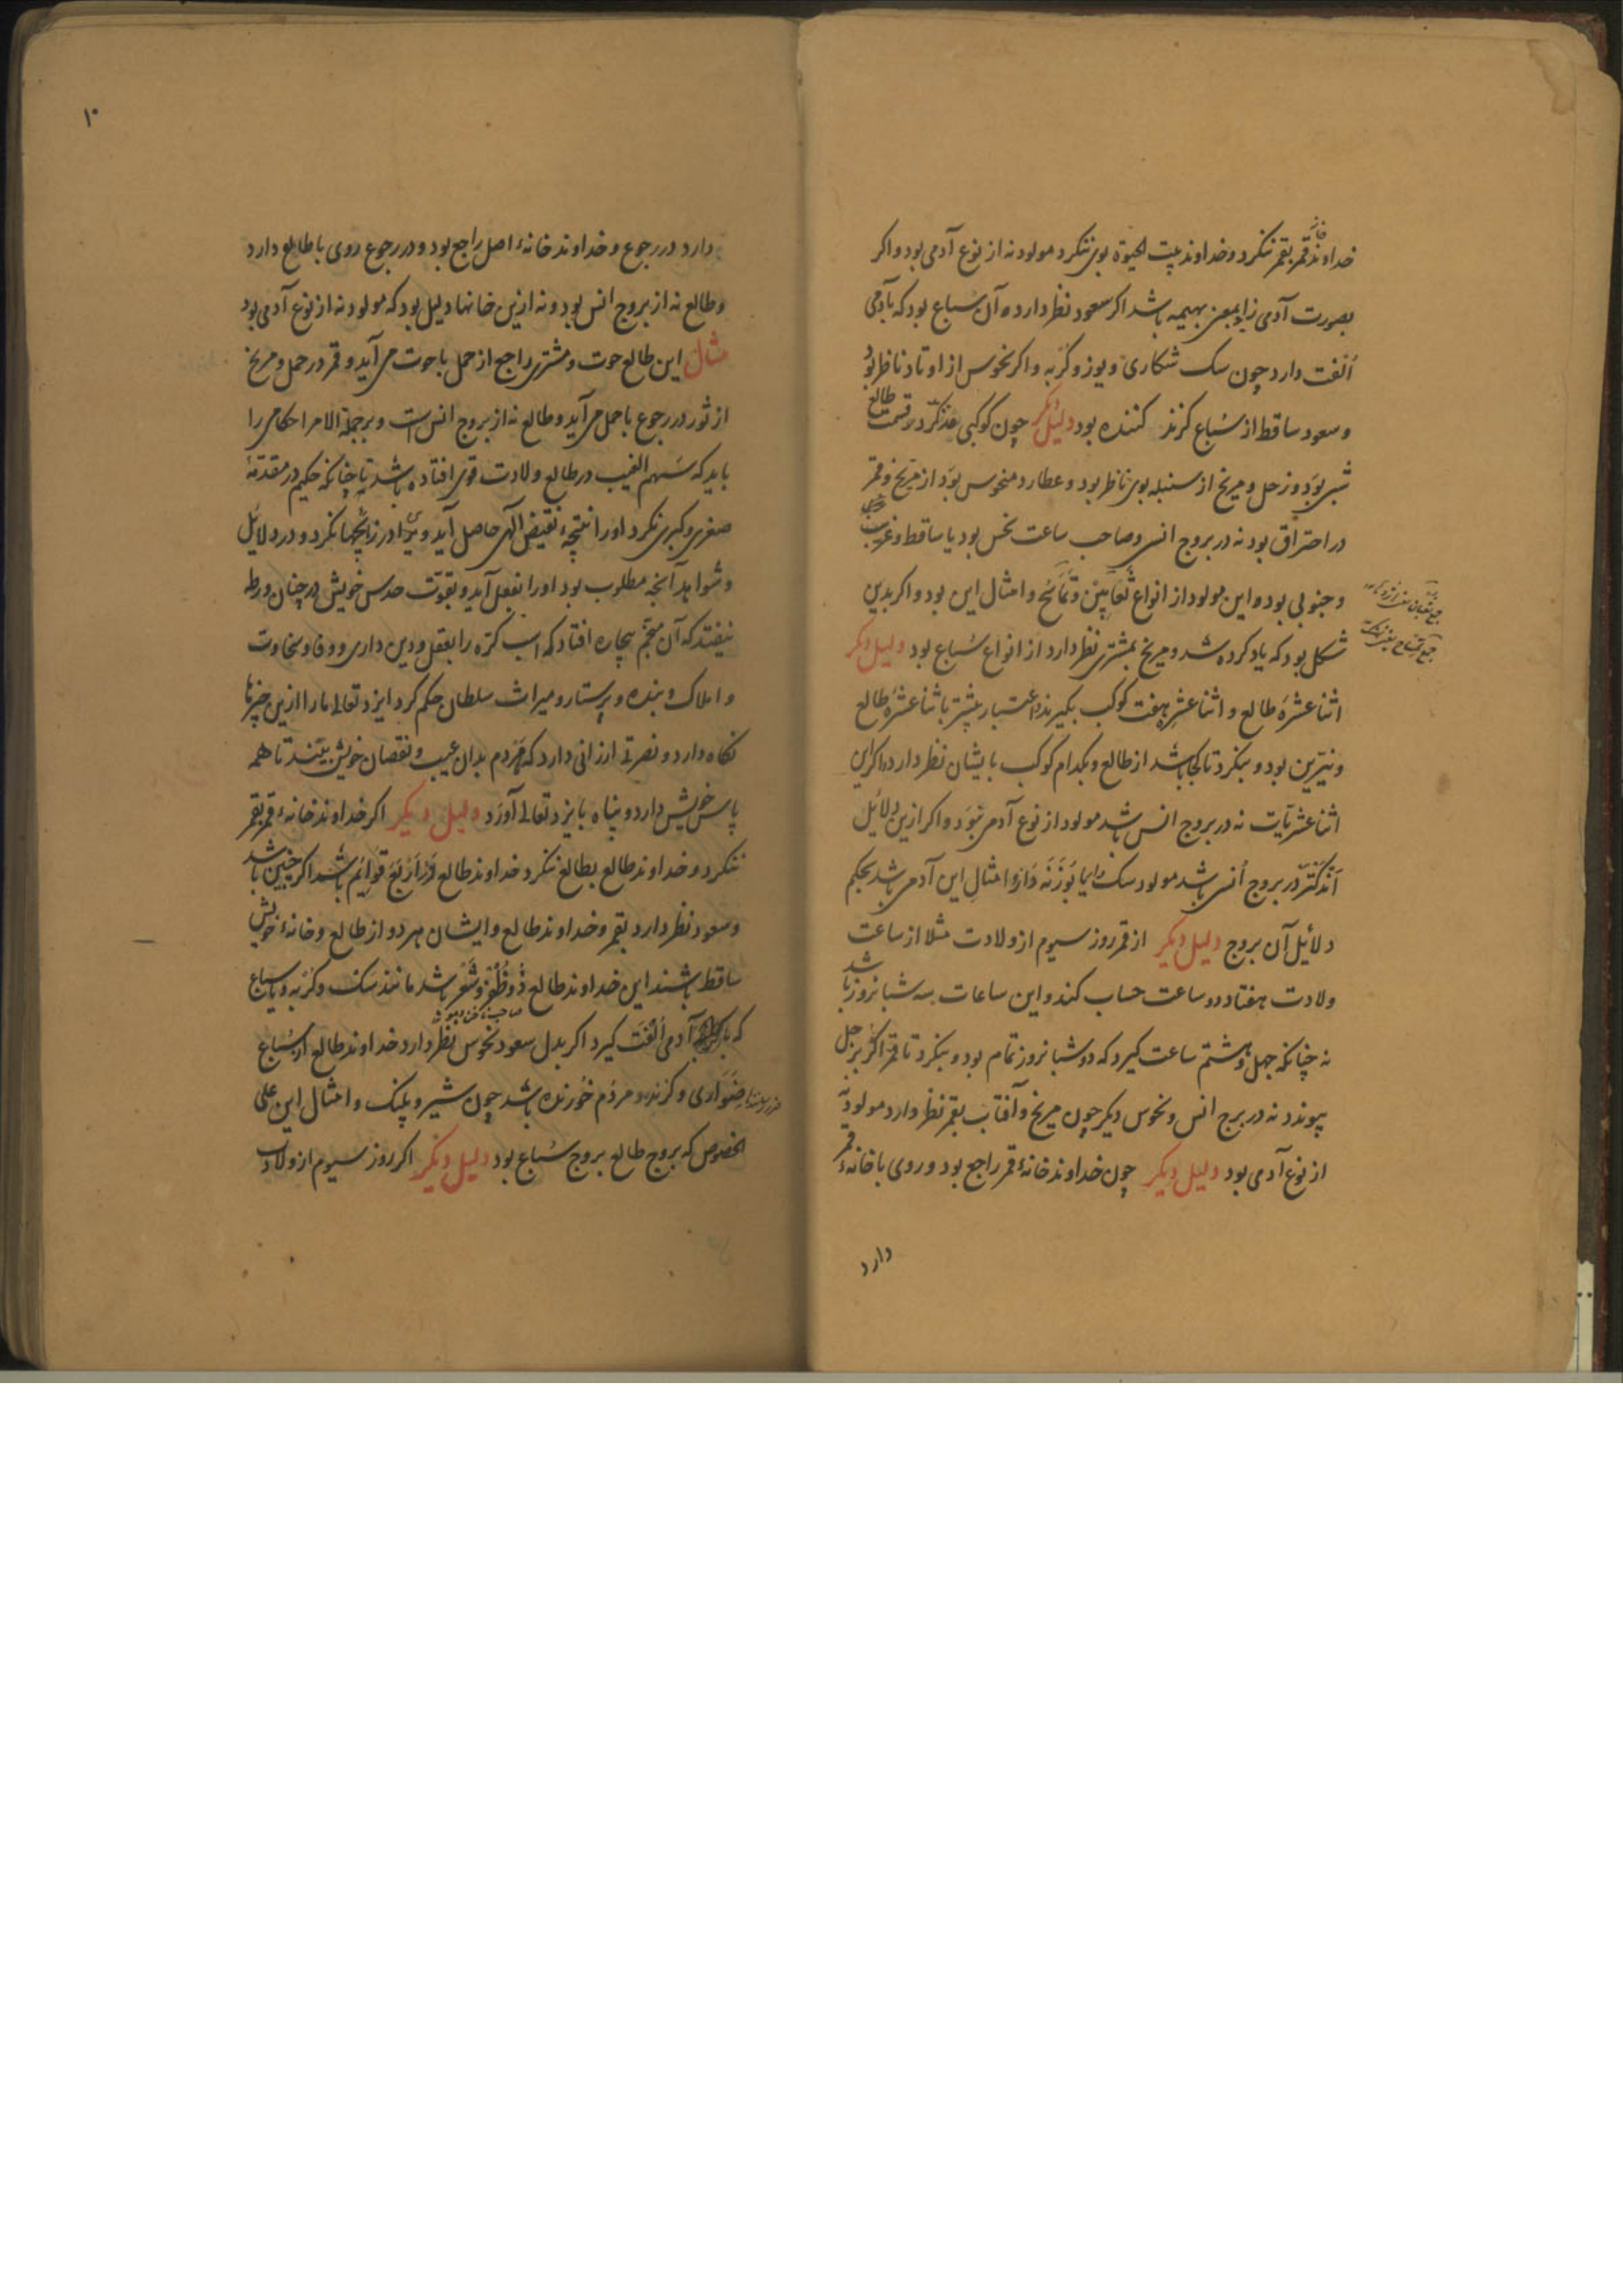 خداوند خانهٔ قمر بقمر ننکرد و خداوند بیت الحیوة بوی ننکرد مولود نه از نوع آدمی بود و اکر
بصورت آدمی زاید بمعنی بهیمه باشد اکر سعود نظر دارد آن سباع بود که بآدمی
اُلفت دارد چون سک شکاری و یوز و کربه و اکر نحوس از اوتاد ناظر بود
و سعود ساقط از سباع کزنده کننده بود دلیل دیکر چون کوکبی مذکر در قسمت طالع
شیر بود و زحل و مریخ از سنبله بوی ناظر بود و عطارد منحوس بود از مریخ و قمر
در احتراق بود نه در بروج انسی و صاحب ساعت نحس بود یا ساقط و غریب
و جنوبی بود و این مولود از انواع ثعابین و تماسیح و امثال این بود و اکر بدین
شکل بود که یاد کرده شد و مریخ بمشتری نظر دارد از انواع سباع بود دلیل دیکر
اثنا عشرهٔ طالع و اثنا عشر هفت کوکب بکیرند و اعتبار بیشتر باثنا عشرهٔ طالع
و نیرین بود و بنکرد تا کجا باشد از طالع و بکدام کوکب بایشان نظر دارد و اکر این
اثنا عشریات نه در بروج انسی باشد مولود از نوع آدمی نبود و اکر ازین دلائل
اندکتر در بروج اُنسی باشد مولود سک را یا بوزنه دار و امثال این آدمی باشد بحکم
دلائل آن بروج دلیل دیکر از قمر روز سیوم از ولادت مثلا از ساعت
ولادت هفتاد دو ساعت حساب کند و این ساعات سه شبانروز باشد
نه چنانکه چهل و هشتم ساعت کیرد که دو شبانروز تمام بود و بنکرد تا قمر اکر بزحل
پیوندد نه در برج انسی و نحوس دیکر چون مریخ و آفتاب بقمر نظر دارد مولود نه
از نوع آدمی بود دلیل دیکر چون خداوند خانهٔ قمر راجع بود و روی با خانهٔ قمر
دارد
۱۰
دارد در رجوع و خداوند خانهٔ اصل راجع بود و در رجوع روی با طالع دارد
و طالع نه از بروج انس بود و نه ازین خانها دلیل بود که مولود نه از نوع آدمی بود
مثال این طالع حوت و مشتری راجع از حمل با حوت می آید و قمر در حمل و مریخ
از ثور در رجوع با حمل می آید و طالع نه از بروج انس است و برجملة الامر احکامی را
باید که سهم الغیب در طالع ولادت قوی افتاده باشد تا چنانکه حکیم در مقدمهٔ
صغری و کبری نکرد او را نتیجهٔ نقیض الهی حاصل آید و نیز در زایچها نکرد و در دلائل
و شواهد آنچه مطلوب بود او را بفعل آید و بقوت حدس خویش در چنان ورطه
نیفتد که آن منجم بیچاره افتاد که اسب کره را بعقل و دین داری و وفا و سخاوت
و املاک و بنده و پرستار و میراث سلطان حکم کرد ایزد تعالی ما را ازین چیزها
نکاه دارد و نصرتی ارزانی دارد که مردم بدان عیب و نقصان خویش بیند تا همه
پاس خویش دارد و پناه بایزد تعالی آورد دلیل دیکر اکر خداوند خانهٔ قمر بقمر
ننکرد و خداوند طالع بطالع ننکرد خداوند طالع ذو اربع قوائم باشد اکر چنین باشد
و سعود نظر دارد بقمر و خداوند طالع و ایشان هر دو از طالع و خانهٔ خویش
ساقط باشند این خداوند طالع ذو ظفر و شعر باشد مانند سک و کربه و یا سباع
که با آدمی اُلفت کیرد اکر بدل سعود نحوس نظر دارد خداوند طالع از سباع
ضواری و کزنده مردم خورنده باشد چون شیر و پلنک و امثال این علی
الخصوص که بروج طالع بروج سباع بود دلیل دیکر اکر روز سیوم از ولادت